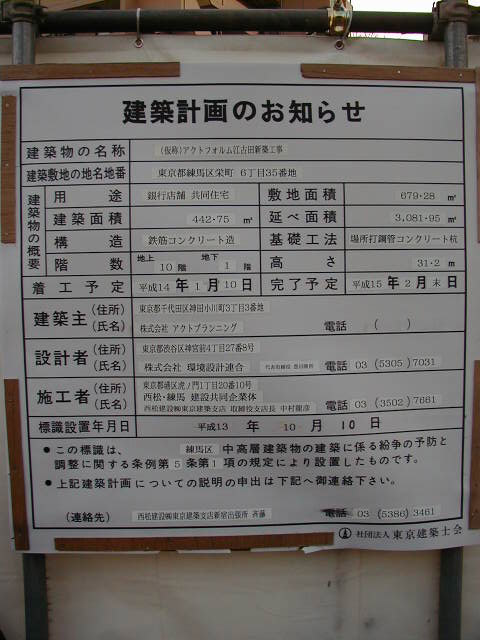 建築計画のお知らせ
建築物の名称 (仮称)アクトフォルム江古田新築工事
建築敷地の地名地番 東京都練馬区栄町 6丁目35番地
建築物の概要
用途 銀行店舗 共同住宅 敷地面積 679・28 ㎡
建築面積 442・75 ㎡ 延べ面積 3,081・95 ㎡
構造 鉄筋コンクリート造 基礎工法 場所打鋼管コンクリート杭
階数 地上 10階 地下 1階 高さ 31・2 m
着工予定 平成14年1月10日 完了予定 平成15年2月末日
建築主 (住所) 東京都千代田区神田小川町3丁目3番地
(氏名) 株式会社 アクトプランニング 電話 ( )
設計者 (住所) 東京都渋谷区神宮前4丁目27番8号
(氏名) 株式会社 環境設計連合 代表取締役 電話 03 (5305) 7031
施工者 (住所) 東京都港区虎ノ門1丁目20番10号
(氏名) 西松・練馬 建設共同企業体
西松建設㈱東京建築支店 取締役支店長 中村龍彦 電話 03 (3502) 7661
標識設置年月日 平成13 年 10 月 10 日
●この標識は、練馬区 中高層建築物の建築に係る紛争の予防と
調整に関する条例第5条第1項の規定により設置したものです。
●上記建築計画についての説明の申出は下記へ御連絡下さい。
(連絡先) 西松建設㈱東京建築支店新宿出張所 斉藤 電話 03 (5386) 3461
社団法人 東京建築士会